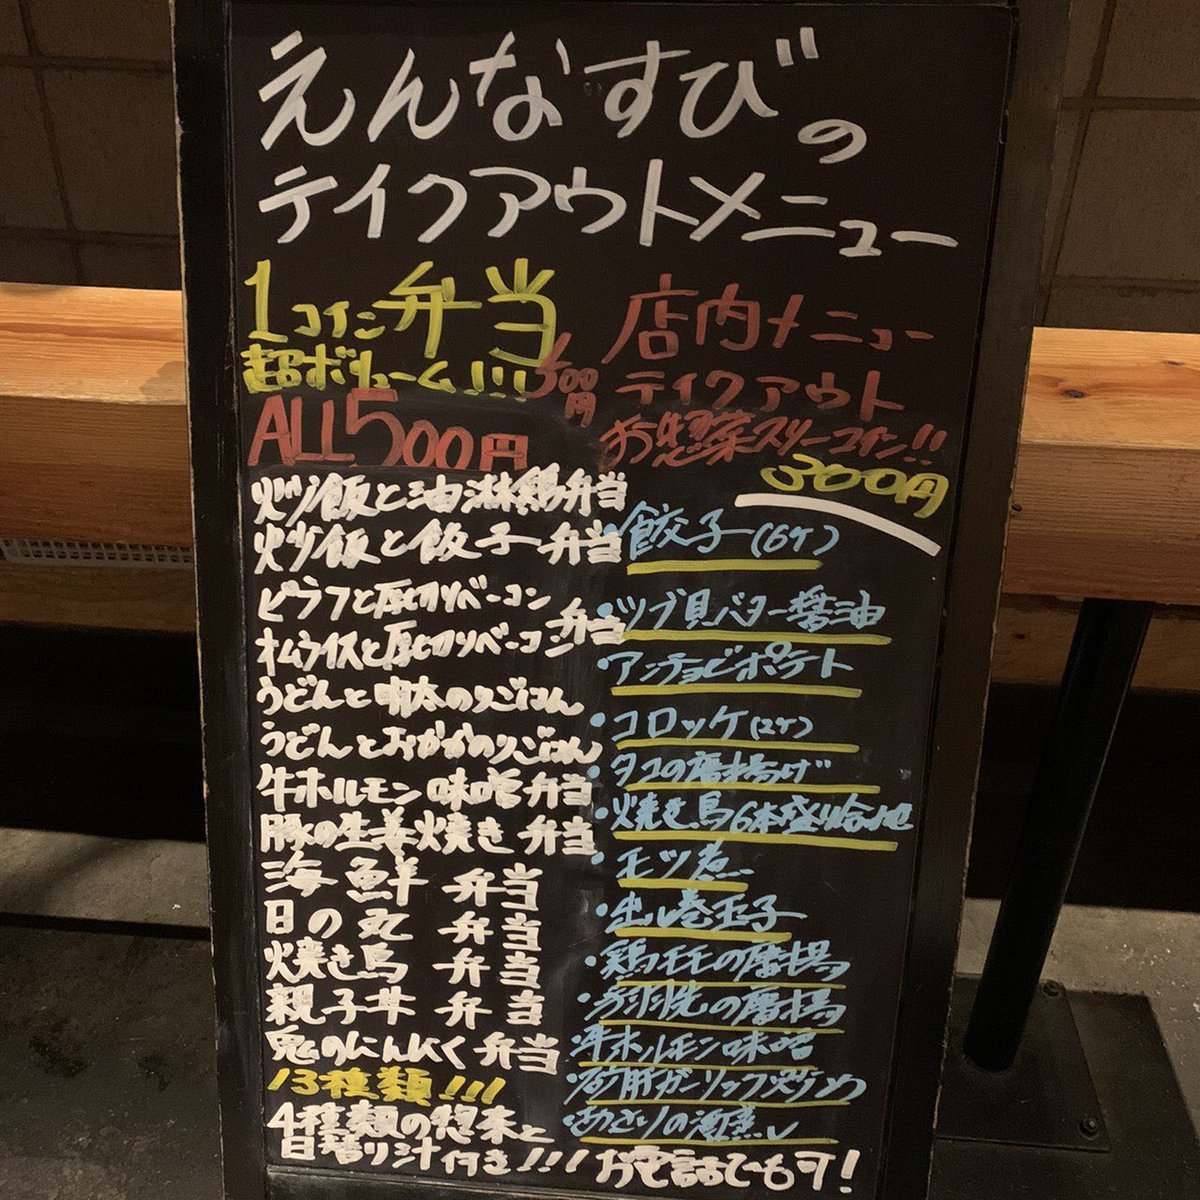 えんなすびの
テイクアウトメニュー
1コイン弁当
超ボリューム!!!
500円
ALL500円
炒飯と油淋鶏弁当
炒飯と餃子弁当
ピラフと厚切りベーコン
オムライスと厚切りベーコン
弁当
うどんと明太のりごはん
うどんとおかかのりごはん
牛ホルモン味噌弁当
豚の生姜焼き弁当
海鮮弁当
日の丸弁当
焼き鳥弁当
親子丼弁当
鬼のにんにく弁当
13種類!!!
4種類の惣菜と
日替り汁付き!!!
店内メニュー
テイクアウト
お惣菜スリーコイン!!
300円
・餃子(6ケ)
・ツブ貝バター醤油
・アンチョビポテト
・コロッケ(2ケ)
・タコの唐揚げ
・焼き鳥6本盛り合わせ
・モツ煮
・出し巻玉子
・鶏モモの唐揚
・手羽先の唐揚
・牛ホルモン味噌
・砂肝ガーリック炒め
・あさりの酒蒸し
お電話でもます!